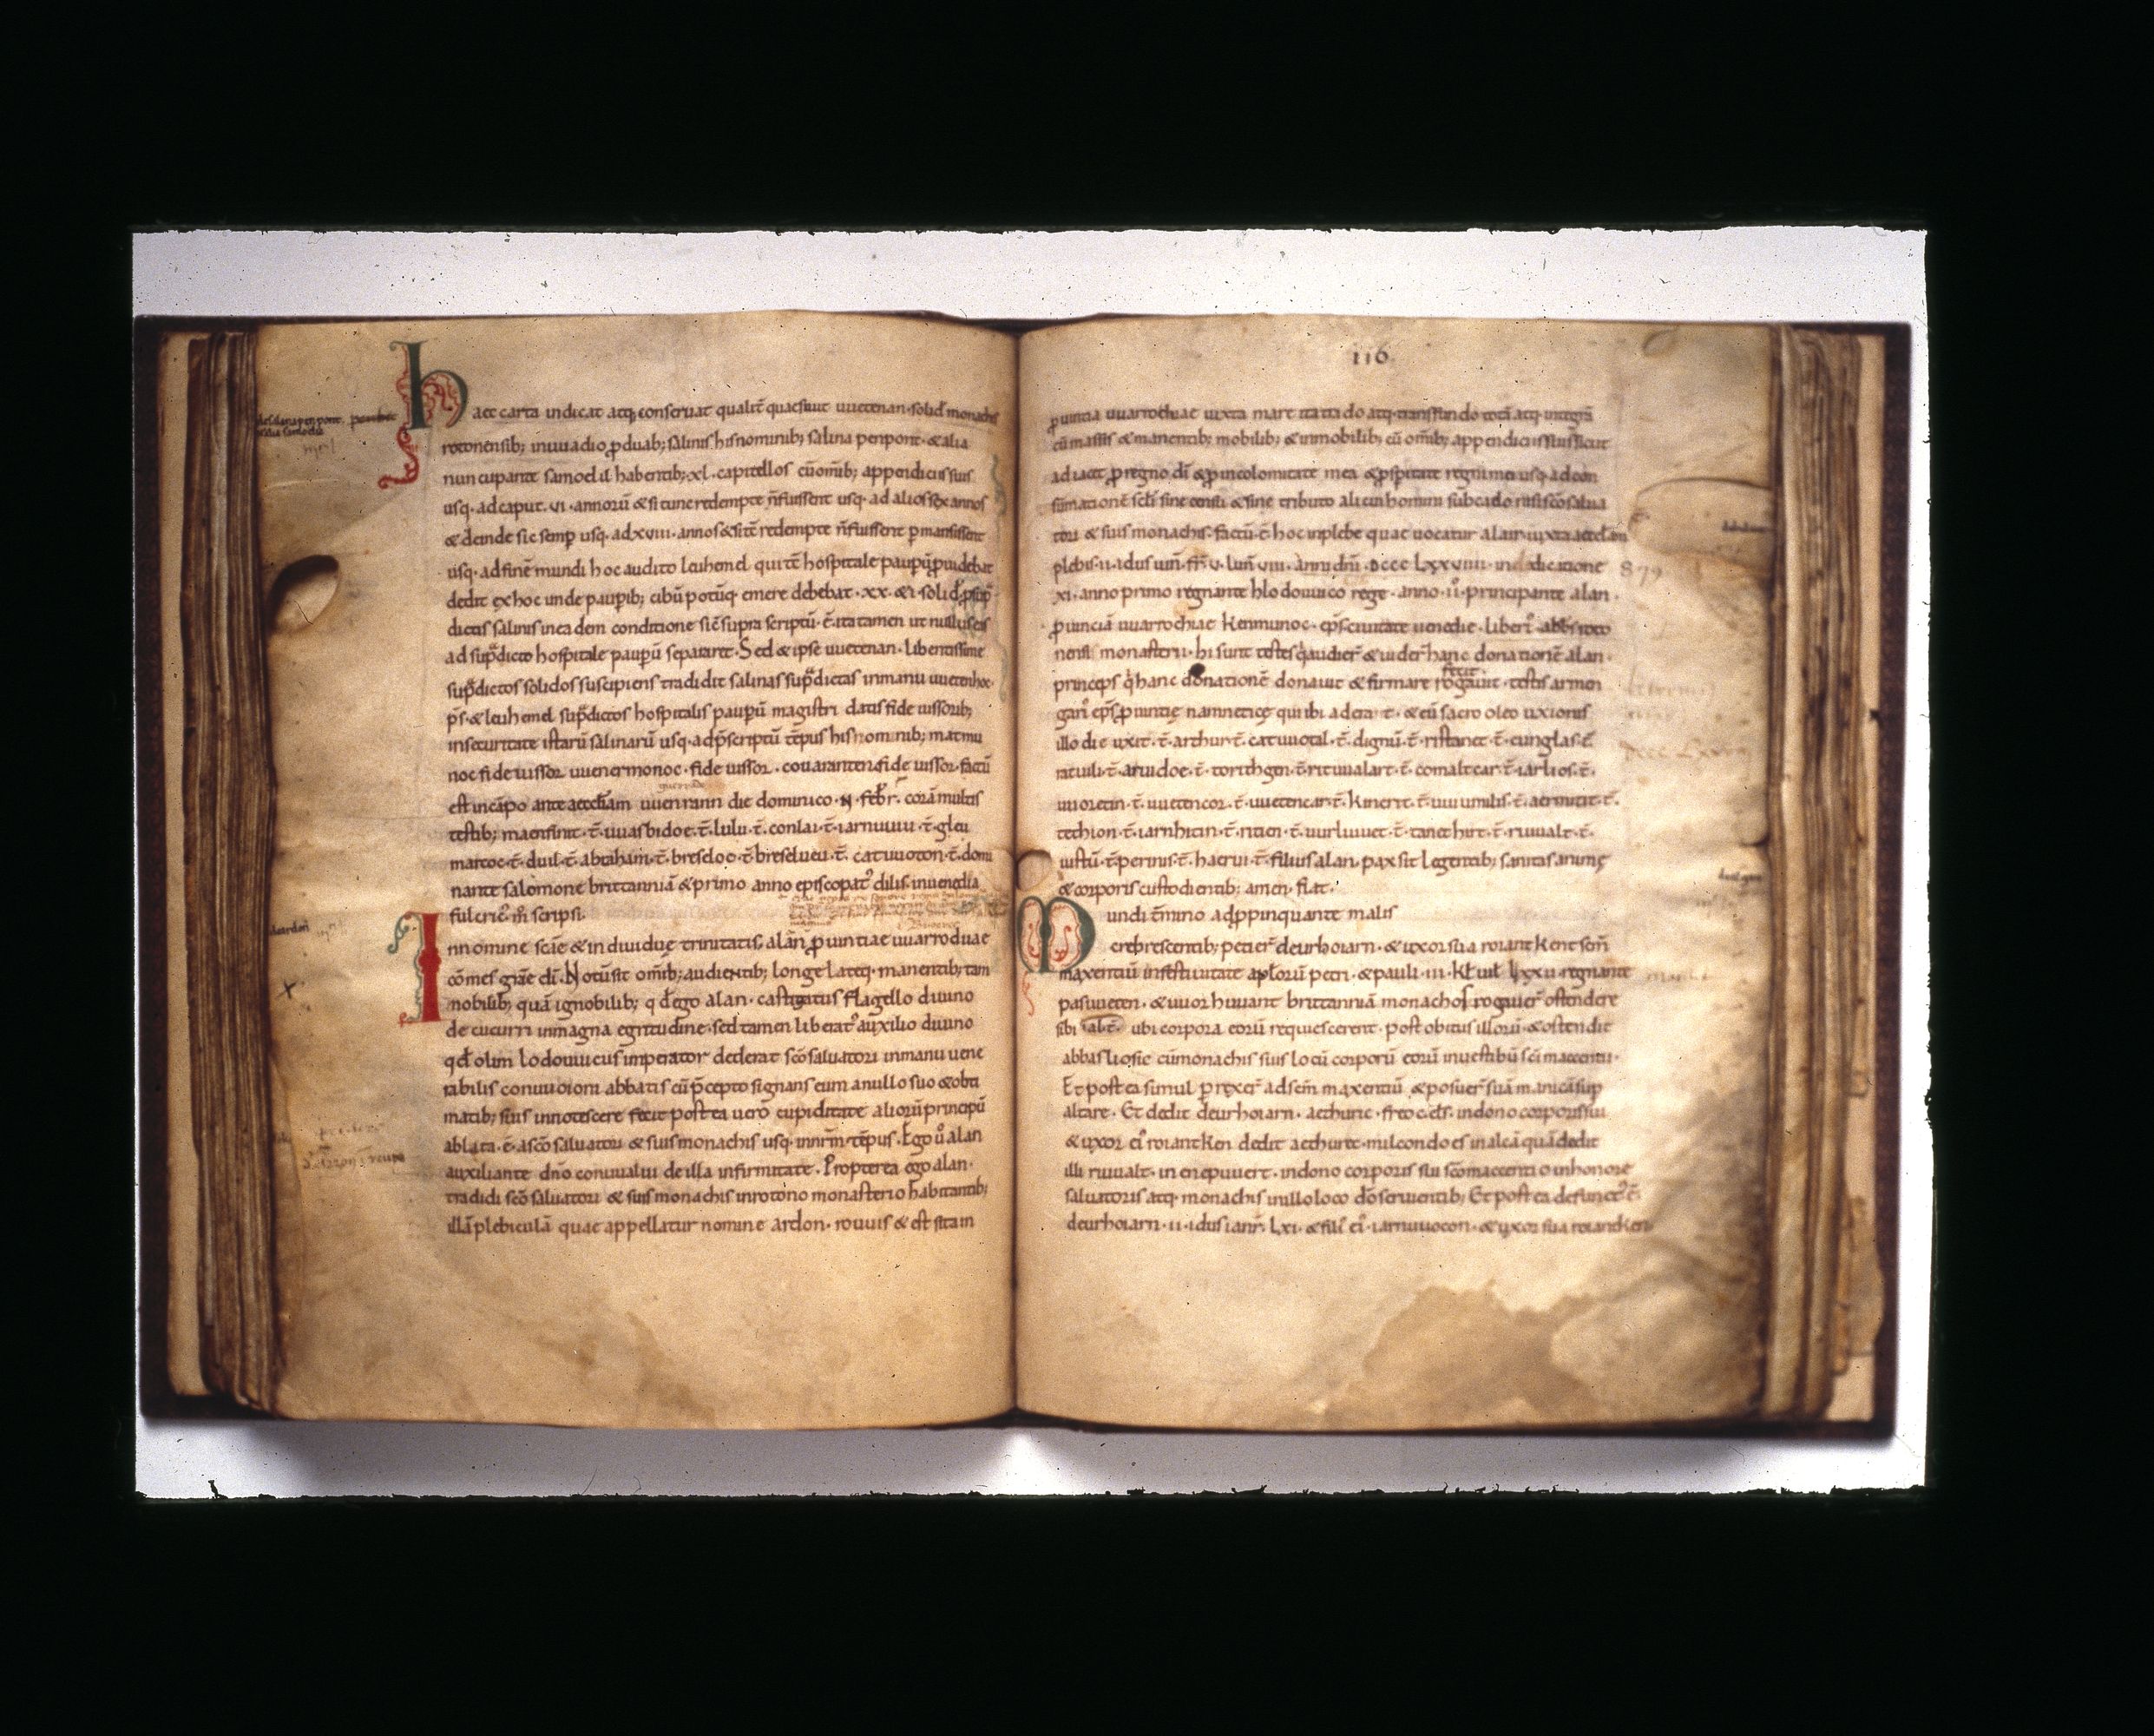 haec carta indicat atq; conseruat qualit̄ quaesiuit uuetenan · solid̄ monachis
rotonensib; inuuadio ꝓduab; salinis hisnominib; salina penpont · & alia
nuncupante samodil habentib; xl · capitellos cūom̄ib; appendiciis suis
usq· adcaput · vi · annorū & si tunc redempte n̄fuissent usq· ad alios sex annos
& deinde sic semp̄ usq· adxviii · annos & sit̄ redempte n̄fuissent ꝑmansissent
usq· adfinē mundi hoc audito leuhemel qui tc̄ hospitale paupū ꝓuidebat
dedit exhoc unde pauꝑib; cibū potūq· emere debebat · xx · & i · solid̄ ꝓsup̄
dictis salinis inea dem conditione sic̄ supra scriptū · ē · ita tamen ut nullus eis
ad sup̄dicto hospitale paupū separaret · Sed & ipse uuetenan · libentissime
sup̄dictos solidos suscipiens tradidit salinas sup̄dictas inmanu uuetenhoc ·
p̄s · & leuhemel sup̄dictos hospitalis paupū magistri datis fide iussorib;
insecuritate istarū salinarū usq· adp̄scriptū tēpus his nominib; matmu
noc fide iussor uuenermonoc · fide iussor · couaranten fide iussor · factū
est incāpo ante aecclīam uuenrann die dominico · N · febr̄ · corā multis
testib; maenfinit · t̄ · uuasbidoe · t̄ · lulu · t̄ · conlai · t̄ · iarnuuiu · t̄ · gleu
marcoc · t̄ · duil · t̄ · abraham · t̄ · bresdoc · t̄ · breselueu · t̄ · catuuoton · t̄ · domi
nante salomone brittanniā & primo anno episcopat᾽ dilis · inuenedia
fulcric᾽ m̄ scripsi ·
Innomine scāe & indiuiduę trinitatis, alān ꝓuintiae uuarroduae
cōmes grāe dī · Notūsit om̄ib; audientib; longe lateq· manentib; tam
nobilib; quā ignobilib; qd̄ ego alan · castigatus flagello diuino
de cucurri inmagna egritudine · sed tamen liberat᾽ auxilio diuino
qd̄ olim lodouuicus imperator dederat scō saluatori inmanu uene
rabilis conuuoioni abbatis cū p̄cepto signans eum anullo suo & obti
matib; suis innotescere fecit post ea uero cupiditate aliorū principū
ablata · ē · a scō saluatori & suis monachis usq· innr̄m · tēpus · Ego ů alan
auxiliante dn̄o conualui de illa infirmitate · Propterea ego alan ·
tradidi scō saluatori & suis monachis inrotono monasterio habitantib;
illā plebiculā quae appellatur nomine ardon · rouuis & est sita in
116
ꝓuintia uuarrochiae iuxta mare ita ita do atq· transfundo totā atq· integrā
cū massis & manentib; mobilib; & inmobilib; cū om̄ib; appendiciis suis sicut
ad iacet ꝓ regno dī & ꝓ incolomitate mea & ꝓsꝑitate regni mei usq· ad con
sumationē scl̄i sine censu & sine tributo alicui homini subcaelo nisi scō salua
tori & suis monachis · factū · ē · hoc inplebe quae uocatur alair iuxta aecclām
plebis · ii · idus iun̄ · fr̄ · v · lun̄ · viii · anni dn̄i · Dccc lxxviiii · indicione 879
xi · anno primo regnante hlodouuico rege · anno · ii · principante alan ·
ꝓuinciā uuarrochiae kenmunoc · ep̄s ciuitate uenedie · liberi᾽ abbs roto
nensi monasterii · hi sunt testes q̄ audier̄ & uider̄ hanc donationē alan ·
princeps q̄ hanc donationē donauit & firmare rogauit · testis armen
fecit
gari᾽ ep̄s ꝓuintię namneticę qui ibi aderat · & eū sacro oleo unxionis
illo die unxit · t̄ · arthur · t̄ · catuuotal · t̄ · dignū · t̄ · ristanet · t̄ · cunglas · t̄ ·
ratuili · t̄ · aruidoe · t̄ · torithgen · t̄ · rituualart · t̄ · comaltcar · t̄ · iarlios · t̄ ·
uuoretin · t̄ · uuetencor · t̄ · uuetencar · t̄ · kinerit · t̄ · uuiumilis · t̄ · aermitit · t̄ ·
techion · t̄ · iarnhitin · t̄ · ritien · t̄ · uurliuuet · t̄ · tanethirt · t̄ · riuualt · t̄ ·
iustū · t̄ · perinis · t̄ · haerui · t̄ · filius alan · pax sit legentib; sanitas animę
& corporis custodientib; amen · fiat ·
Mundi t̄mino adp̄pinquante malis
crebrescentib; petier̄ deurhoiarn · & uxor sua roiantken scm̄
maxentiū infestiuitate aplōrū petri · & pauli · iii · kl̄ iul̄ lxxii regnante
pasuueten · & uuorhuuant brittanniā monachos rogauer̄ ostendere
sibi ab t̄ · ubi corpora eorū requiescerent · post obitus illorū · & ostendit
abbas liosic cū monachis suis locū corporū eorū inuestibū scī maccenti ·
Et post ea simul ꝑrexer̄ ad scm̄ maxentiū & posuer̄ suā manicā sup
altare · Et dedit deurhoiarn · aethuric · freoc · els · indono corporis sui
& uxor ei᾽ roiantken dedit aethurec · milcondoes in aleā quā dedit
illi riuualt · in enepuuert · indono corporis sui scō maccentio inhonore
saluatoris atq· monachis inillo loco dō seruientib; Et post ea defunct᾽ ē ·
deurhoiarn · ii · idus ianr̄ · lxi · & fili᾽ ei᾽ · iarnuuocon · & uxor sua roiantken